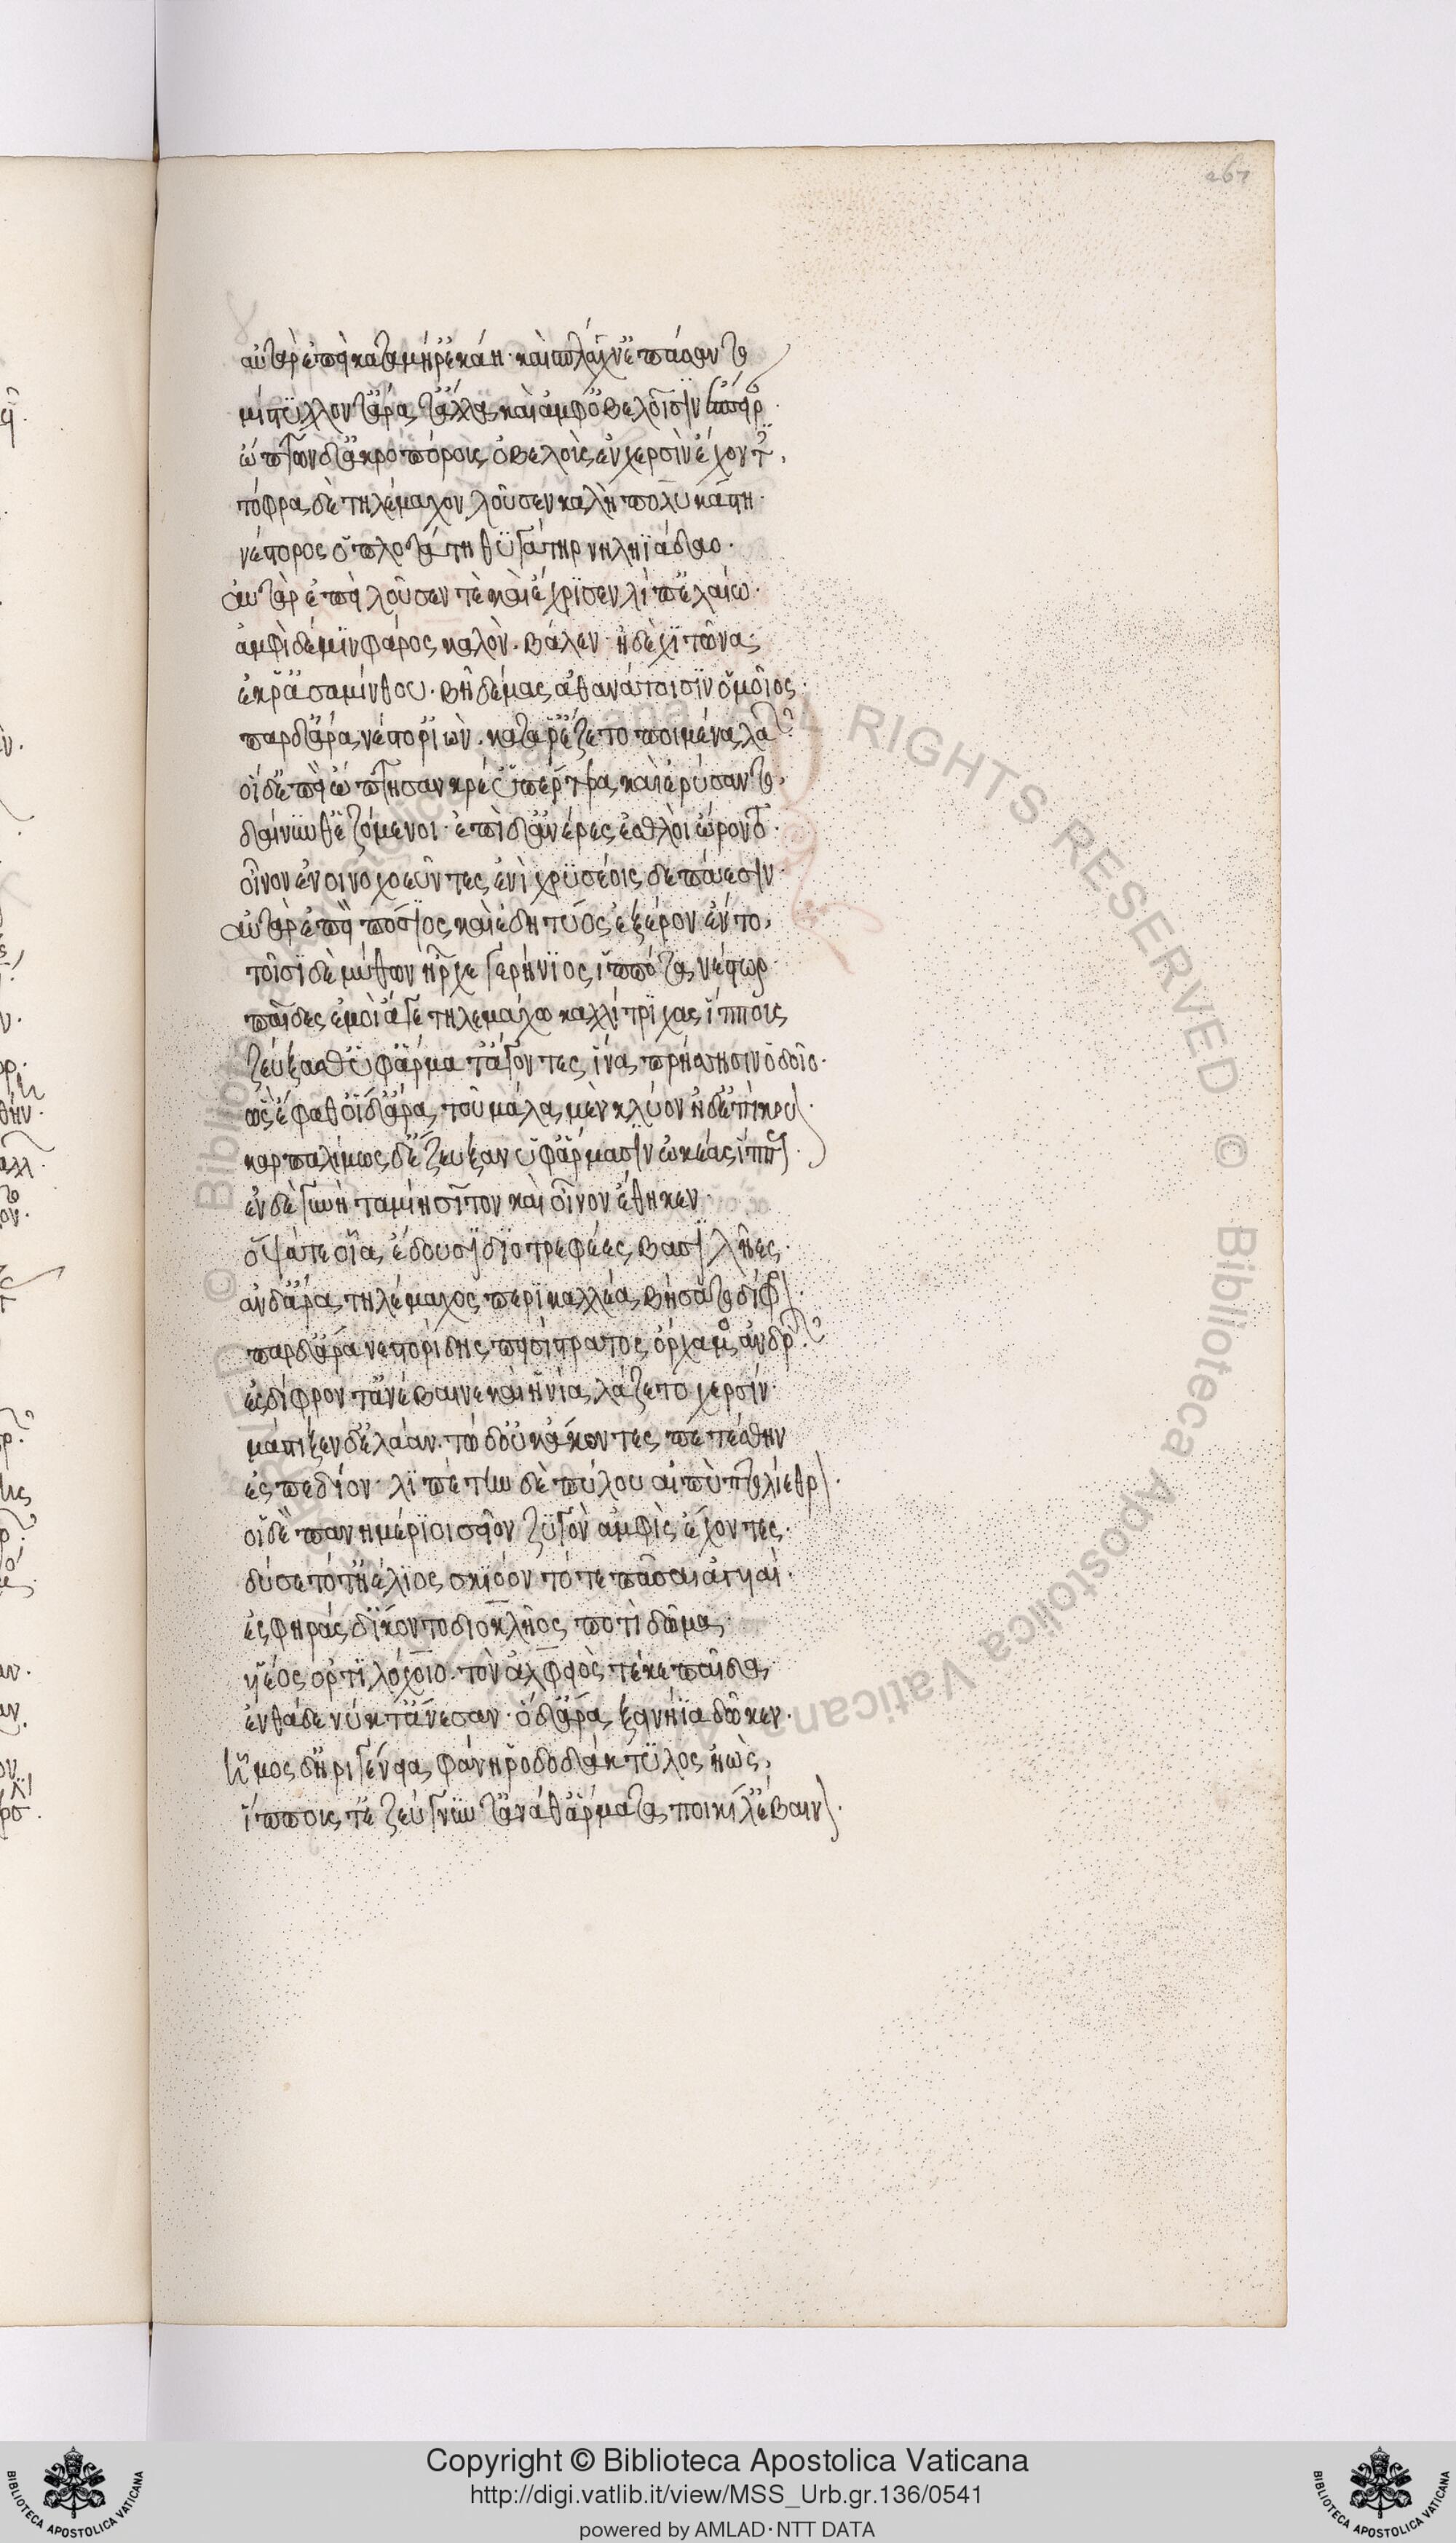 267
αὐτὰρ ἐπεὶ κατὰ μῆρ' ἐκάη· καὶ σπλάγχν' ἐπάσαντο
μίστυλλόν τ' ἄρα τἆλλα, καὶ ἀμφ' ὀβελοῖσιν ἔπειρ
ὤπτων δ' ἀκροπόρους ὀβελοὺς ἐν χερσὶν ἔχοντ
τόφρα δὲ τηλέμαχον λοῦσεν καλὴ πολυκάστη·
νέστορος ὁπλοτάτη θυγάτηρ νηληϊάδαο·
αὐτὰρ ἐπεὶ λοῦσέν τε καὶ ἔχρισεν λίπ' ἐλαίω·
ἀμφὶ δέ μιν φάρος καλὸν βάλεν ἠδὲ χιτῶνα
ἐκ ῥ' ἀσαμίνθου βῆ δέμας ἀθανάτοισιν ὁμοῖος·
παρ δ' ἄρα νέστορ' ἰὼν κατ' ἄρ' ἕζετο ποιμένα λα
οἱ δ' ἐπεὶ ὤπτησαν κρέ' ὑπέρτερα καὶ ἐρύσαντο,
δαίνυνθ' ἑζόμενοι· ἐπὶ δ' ἀνέρες ἐσθλοὶ ὤροντο·
οἶνον ἐνοινοχοεῦντες ἐνὶ χρυσέοις δεπάεσιν·
αὐτὰρ ἐπεὶ πόσιος καὶ ἐδητύος ἐξ ἔρον ἕντο,
τοῖσι δὲ μύθων ἦρχε γερήνιος ἱππότα νέστωρ·
παῖδες ἐμοὶ ἄγε τηλεμάχω καλλίτριχας ἵππους
ζεύξαθ' ὑφ' ἅρματ' ἄγοντες, ἵνα πρήσσησιν ὁδοῖο·
ὣς ἔφαθ' οἱ δ' ἄρα τοῦ μάλα μὲν κλύον ἠδ' ἐπίθου
καρπαλίμως δ' ἔζευξαν ὑφ' ἅρμασιν ὠκέας ἵππ
ἐν δὲ γυνὴ ταμίη σῖτον καὶ οἶνον ἔθηκεν·
ὄψά τε οἷα ἔδουσι διοτρεφέες βασιλῆες·
ἂν δ' ἄρα τηλέμαχος περικαλλέα βήσατο δίφ
παρ δ' ἄρα νεστορίδης πεισίστρατος ὄρχαμος ἀνδρ
ἐς δίφρον τ' ἀνέβαινε καὶ ἡνία λάζετο χερσίν·
μάστιξεν δ' ἐλάαν· τὼ δ' οὐκ ἄκοντες πετέσθην
ἐς πεδίον· λιπέτην δὲ πύλου αἰπὺ πτολίεθρ
οἱ δὲ πανημέριοι σεῖον ζυγὸν ἀμφὶς ἔχοντες·
δύσετό τ' ἠέλιος σκιόωντό τε πᾶσαι ἀγυιαί·
ἐς φηρὰς δ' ἵκοντο διοκλῆος ποτὶ δῶμα
υἱέος ὀρτιλόχοιο τὸν ἀλφειὸς τέκε παῖδα
ἔνθα δὲ νύκτ' ἄνεσαν· ὁ δ' ἄρα ξεινήϊα δῶκεν·
ἦμος δ' ἠριγένεια φάνη ῥοδοδάκτυλος ἠώς,
ἵππους τε ζεύγνυντ' ἀνά θ' ἅρματα ποικίλ' ἔβαιν
Copyright © Biblioteca Apostolica Vaticana
http://digi.vatlib.it/view/MSS_Urb.gr.136/0541
powered by AMLAD·NTT DATA